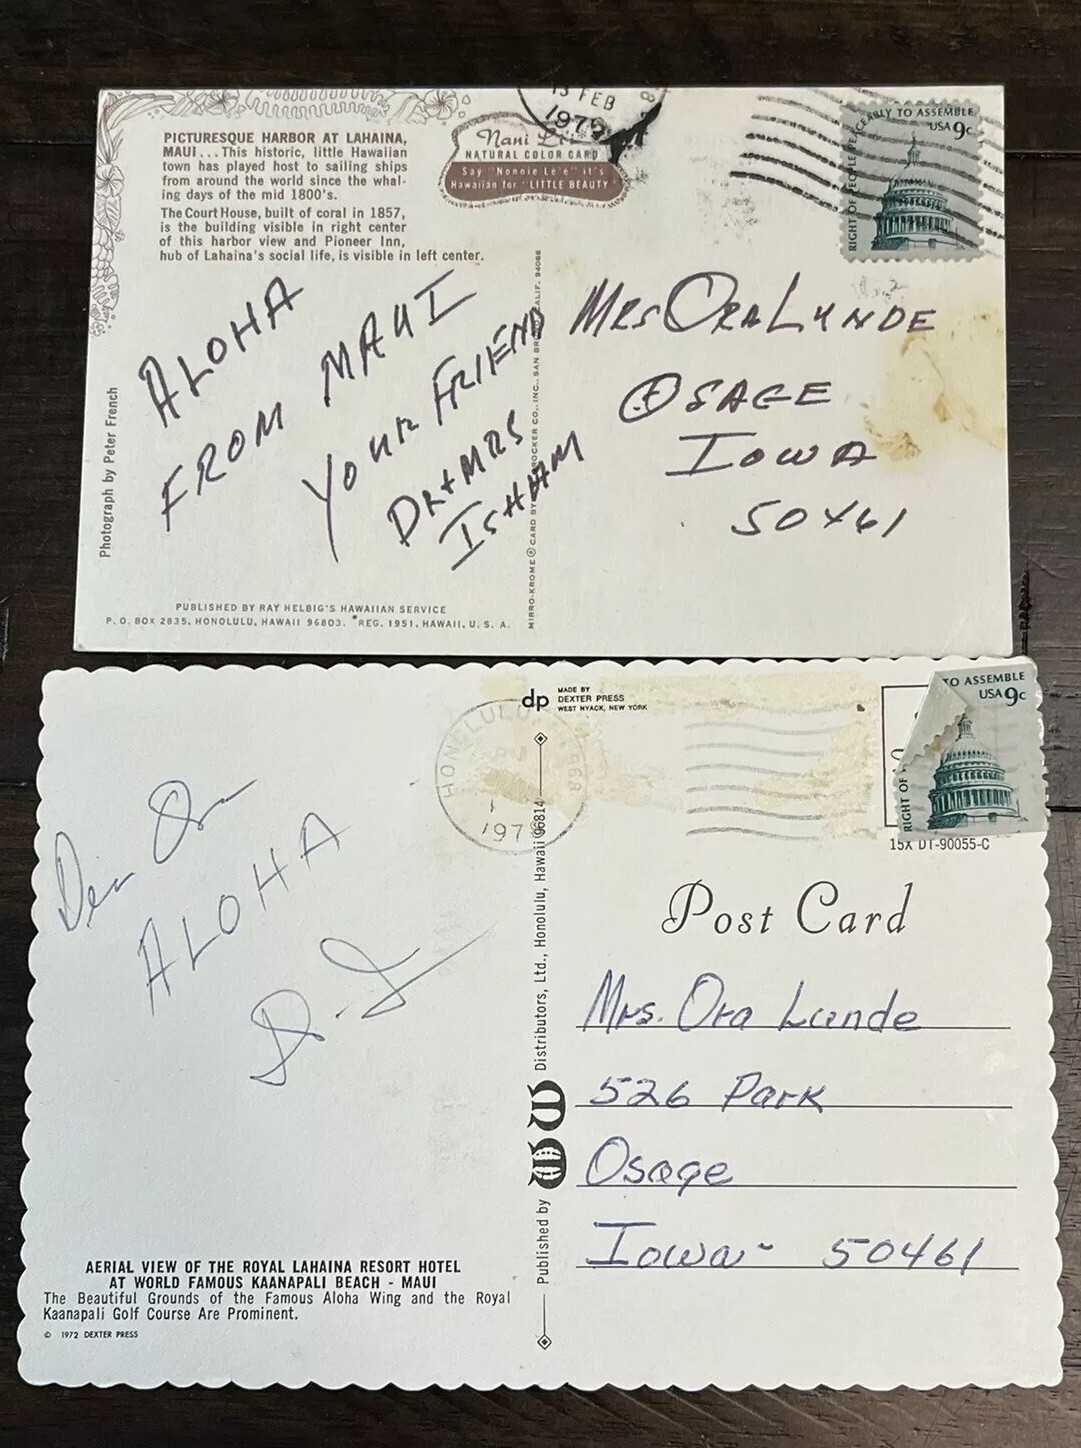 PICTURESQUE HARBOR AT LAHAINA,
MAUI... This historic, little Hawaiian
town has played host to sailing ships
from around the world since the whal-
ing days of the mid 1800's.
The Court House, built of coral in 1857,
is the building visible in right center
of this harbor view and Pioneer Inn,
hub of Lahaina's social life, is visible in left center.
Photograph by Peter French
Nani
NATURAL COLOR CARD
Say "Nonnie Le'e" it's
Hawaiian for "LITTLE BEAUTY"
13 FEB
1979
RIGHT OF PEOPLE PEACEABLY TO ASSEMBLE
USA 9c
ALOHA
FROM MAUI
YOUR FRIEND
DR + MRS
ISHAM
MIRRO-KROME ® CARD BY CROCKER CO., INC., SAN BRUNO, CALIF. 94066
MRS ORA LUNDE
OSAGE
IOWA
50461
PUBLISHED BY RAY HELBIG'S HAWAIIAN SERVICE
P. O. BOX 2835, HONOLULU, HAWAII 96803. *REG. 1951, HAWAII, U. S. A.
dp
MADE BY
DEXTER PRESS
WEST NYACK, NEW YORK
HONOLULU
197
TO ASSEMBLE
USA 9c
RIGHT OF
15X DT-90055-C
Dear Ora
ALOHA
Post Card
Published by WW Distributors, Ltd., Honolulu, Hawaii 96814
Mrs. Ora Lunde
526 Park
Osage
Iowa - 50461
AERIAL VIEW OF THE ROYAL LAHAINA RESORT HOTEL
AT WORLD FAMOUS KAANAPALI BEACH - MAUI
The Beautiful Grounds of the Famous Aloha Wing and the Royal
Kaanapali Golf Course Are Prominent.
© 1972 DEXTER PRESS